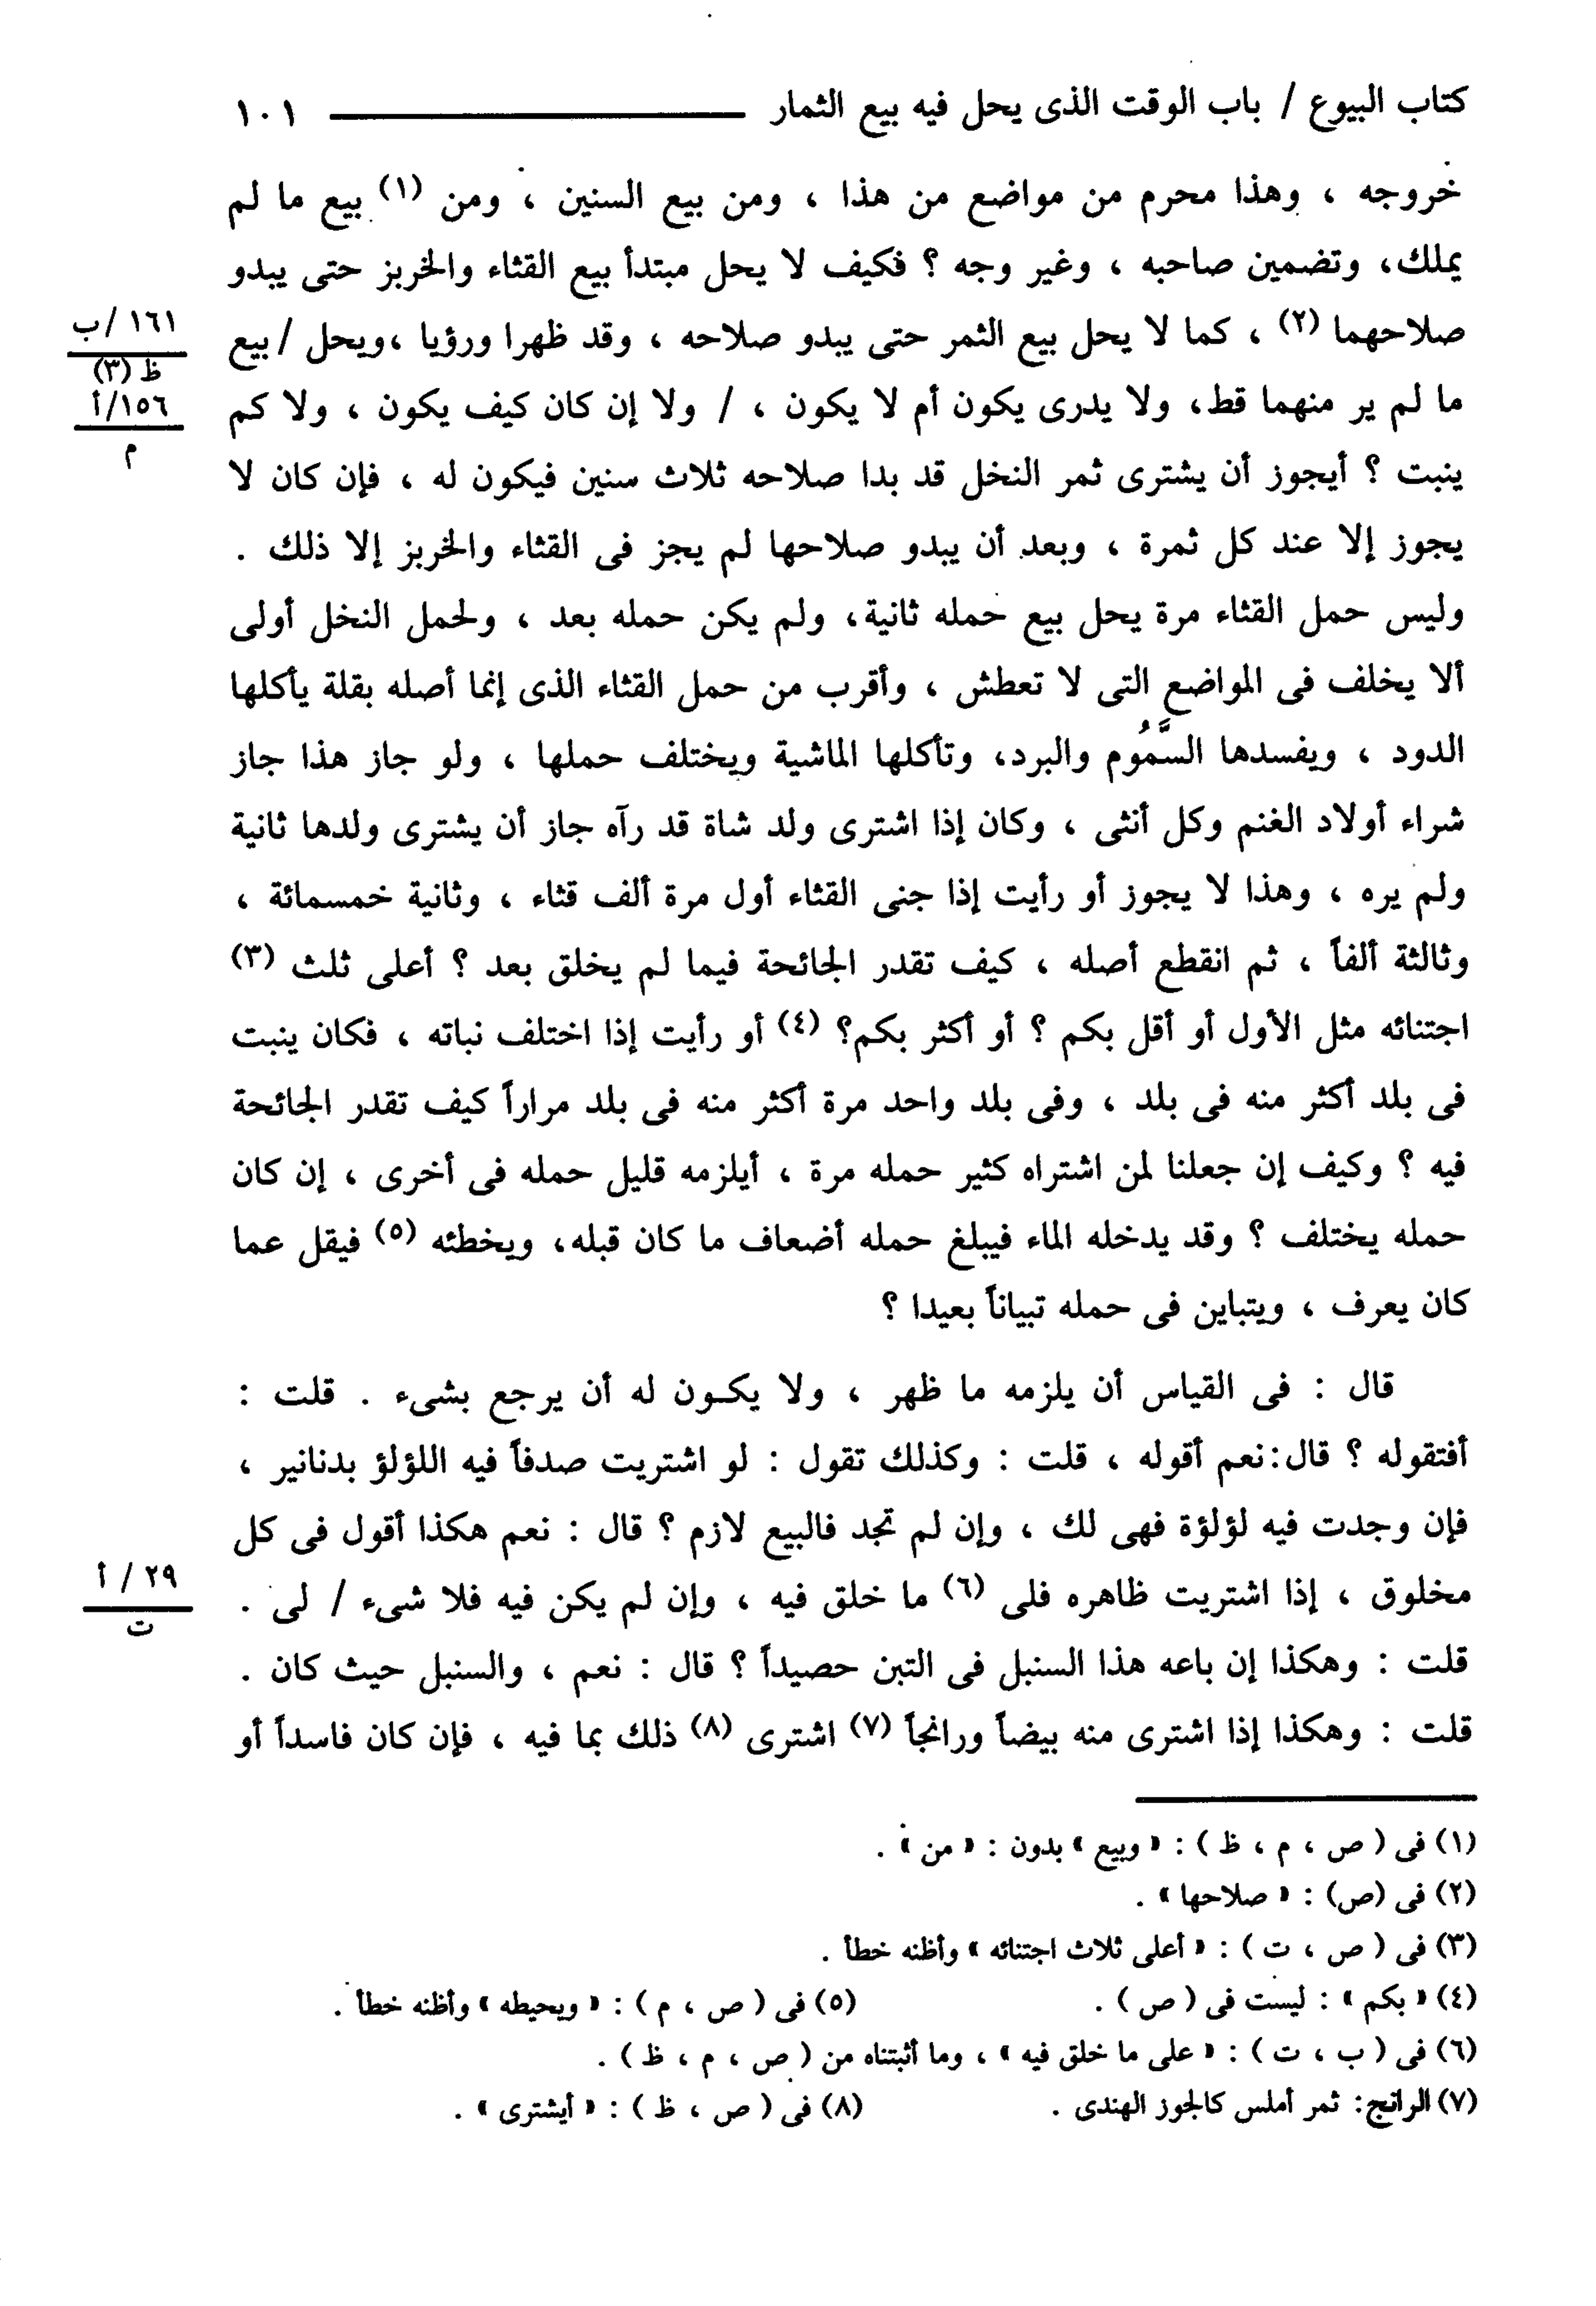 كتاب البيوع / باب الوقت الذى يحل فيه بيع الثمار ١٠١
خروجه ، وهذا محرم من مواضع من هذا ، ومن بيع السنين ، ومن (١) بيع ما لم
يملك، وتضمين صاحبه ، وغير وجه ؟ فكيف لا يحل مبتدأ بيع القثاء والخربز حتى يبدو
صلاحهما (٢) ، كما لا يحل بيع الثمر حتى يبدو صلاحه ، وقد ظهرا ورؤيا ،ويحل /بيع
١٦١ /ب
ظ (٣)
ما لم ير منهما قط، ولا يدرى يكون أم لا يكون ، / ولا إن كان كيف يكون ، ولا كم
١٥٦/أ
م
ينبت ؟ أيجوز أن يشترى ثمر النخل قد بدا صلاحه ثلاث سنين فيكون له ، فإن كان لا
يجوز إلا عند كل ثمرة ، وبعد أن يبدو صلاحها لم يجز فى القثاء والخربز إلا ذلك .
وليس حمل القثاء مرة يحل بيع حمله ثانية، ولم يكن حمله بعد ، ولحمل النخل أولى
ألا يخلف فى المواضع التى لا تعطش ، وأقرب من حمل القثاء الذى إنما أصله بقلة يأكلها
الدود ، ويفسدها السَّمُوم والبرد، وتأكلها الماشية ويختلف حملها ، ولو جاز هذا جاز
شراء أولاد الغنم وكل أنثى ، وكان إذا اشترى ولد شاة قد رآه جاز أن يشترى ولدها ثانية
ولم يره ، وهذا لا يجوز أو رأيت إذا جنى القثاء أول مرة ألف قثاء ، وثانية خمسمائة ،
وثالثة ألفاً ، ثم انقطع أصله ، كيف تقدر الجائحة فيما لم يخلق بعد ؟ أعلى ثلث (٣)
اجتنائه مثل الأول أو أقل بكم ؟ أو أكثر بكم؟ (٤) أو رأيت إذا اختلف نباته ، فكان ينبت
فى بلد أكثر منه فى بلد ، وفى بلد واحد مرة أكثر منه فى بلد مراراً كيف تقدر الجائحة
فيه ؟ وكيف إن جعلنا لمن اشتراه كثير حمله مرة ، أيلزمه قليل حمله فى أخرى ، إن كان
حمله يختلف ؟ وقد يدخله الماء فيبلغ حمله أضعاف ما كان قبله، ويخطئه (٥) فيقل عما
كان يعرف ، ويتباين فى حمله تبياناً بعيدا ؟
قال : فى القياس أن يلزمه ما ظهر ، ولا يكون له أن يرجع بشىء . قلت :
أفتقوله ؟ قال:نعم أقوله ، قلت : وكذلك تقول : لو اشتريت صدفاً فيه اللؤلؤ بدنانير ،
فإن وجدت فيه لؤلؤة فهى لك ، وإن لم تجد فالبيع لازم ؟ قال : نعم هكذا أقول فى كل
مخلوق ، إذا اشتريت ظاهره فلى (٦) ما خلق فيه ، وإن لم يكن فيه فلا شىء / لى .
٢٩ / أ
ت
قلت : وهكذا إن باعه هذا السنبل فى التبن حصيداً ؟ قال : نعم ، والسنبل حيث كان .
قلت : وهكذا إذا اشترى منه بيضاً ورانجاً (٧) اشترى (٨) ذلك بما فيه ، فإن كان فاسداً أو
(١) فى ( ص ، م ، ظ ) : « وبيع » بدون : « من » .
(٢) فى (ص) : « صلاحها » .
(٣) فى ( ص ، ت ) : « أعلى ثلاث اجتنائه » وأظنه خطأ .
(٤) « بكم » : ليست فى ( ص ) . (٥) فى ( ص ، م ) : « ويحيطه » وأظنه خطأ .
(٦) فى ( ب ، ت ) : « على ما خلق فيه » ، وما أثبتناه من ( ص ، م ، ظ ) .
(٧) الرانج: ثمر أملس كالجوز الهندى . (٨) فى ( ص ، ظ ) : « أيشترى » .